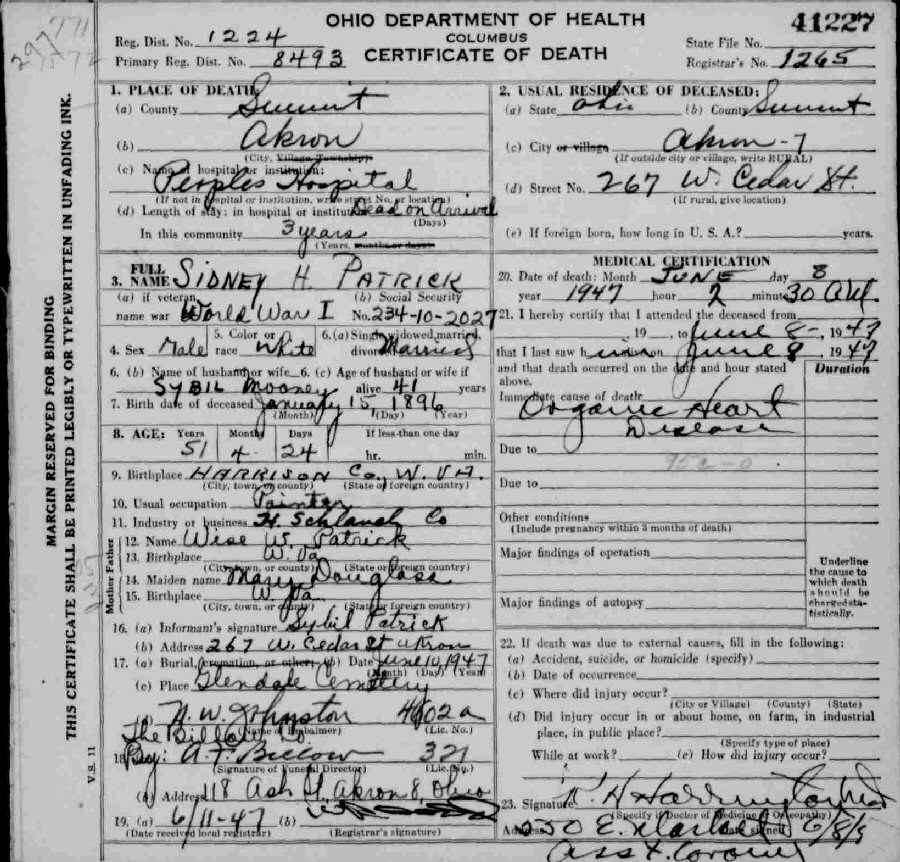 297 771
75 72
OHIO DEPARTMENT OF HEALTH
COLUMBUS
CERTIFICATE OF DEATH
41227
Reg. Dist. No. 1224
Primary Reg. Dist. No. 8493
State File No.
Registrar's No. 1265
MARGIN RESERVED FOR BINDING
THIS CERTIFICATE SHALL BE PRINTED LEGIBLY OR TYPEWRITTEN IN UNFADING INK.
V.S. 11
1. PLACE OF DEATH:
(a) County Summit
(b) Akron
(City, Village, Township)
(c) Name of hospital or institution:
Peoples Hospital
(If not in hospital or institution, write street No. or location)
(d) Length of stay: in hospital or institution Dead on Arrival
(Days)
In this community 3 years
(Years, months or days)
2. USUAL RESIDENCE OF DECEASED:
(a) State Ohio (b) County Summit
(c) City or village Akron-7
(If outside city or village, write RURAL)
(d) Street No. 267 W. Cedar St.
(If rural, give location)
(e) If foreign born, how long in U. S. A.? years.
3. FULL NAME SIDNEY H. PATRICK
(a) if veteran, name war World War I
(b) Social Security No. 234-10-2027
4. Sex Male
5. Color or race White
6. (a) Single, widowed, married, divorced Married
6. (b) Name of husband or wife SYBIL Mooney
6. (c) Age of husband or wife if alive 41 years
7. Birth date of deceased January 15, 1896
(Month) (Day) (Year)
8. AGE: Years 51 Months 4 Days 24 If less than one day hr. min.
9. Birthplace HARRISON Co., W. VA.
(City, town, or county) (State or foreign country)
10. Usual occupation Painter
11. Industry or business H. Schlauch Co
Father
12. Name Wise W. Patrick
13. Birthplace W. Va
(City, town, or county) (State or foreign country)
Mother
14. Maiden name Mary Douglass
15. Birthplace W. Va
(City, town, or county) (State or foreign country)
16. (a) Informant's signature Sybil Patrick
(b) Address 267 W. Cedar St Akron
17. (a) Burial, cremation, or other; (b) Date June 10, 1947
(Month) (Day) (Year)
(c) Place Glendale Cemetery
N. W. Johnston 4602a
(Name of Embalmer) (Lic. No.)
The Billow Co
18. By: A. F. Billow 321
(Signature of Funeral Director) (Lic. No.)
(b) Address 118 Ash St. Akron 8, Ohio
19. (a) 6/11-47 (b)
(Date received local registrar) (Registrar's signature)
MEDICAL CERTIFICATION
20. Date of death: Month JUNE day 8
year 1947 hour 2 minute 30 AM.
21. I hereby certify that I attended the deceased from
19 , to June 8-, 1947
that I last saw him on June 8, 1947
and that death occurred on the date and hour stated above.
Duration
Immediate cause of death
Organic Heart
Disease
Due to
95c-0
Due to
Other conditions
(Include pregnancy within 3 months of death)
Major findings of operation
Major findings of autopsy
Underline the cause to which death should be charged statistically.
22. If death was due to external causes, fill in the following:
(a) Accident, suicide, or homicide (specify)
(b) Date of occurrence
(c) Where did injury occur?
(City or Village) (County) (State)
(d) Did injury occur in or about home, on farm, in industrial
place, in public place?
(Specify type of place)
While at work? (e) How did injury occur?
23. Signature R. H. Harrington, MD
(Specify if Doctor of Medicine or Osteopathy)
Address 550 E. Market Date signed 6/8/
Ass't. Coroner